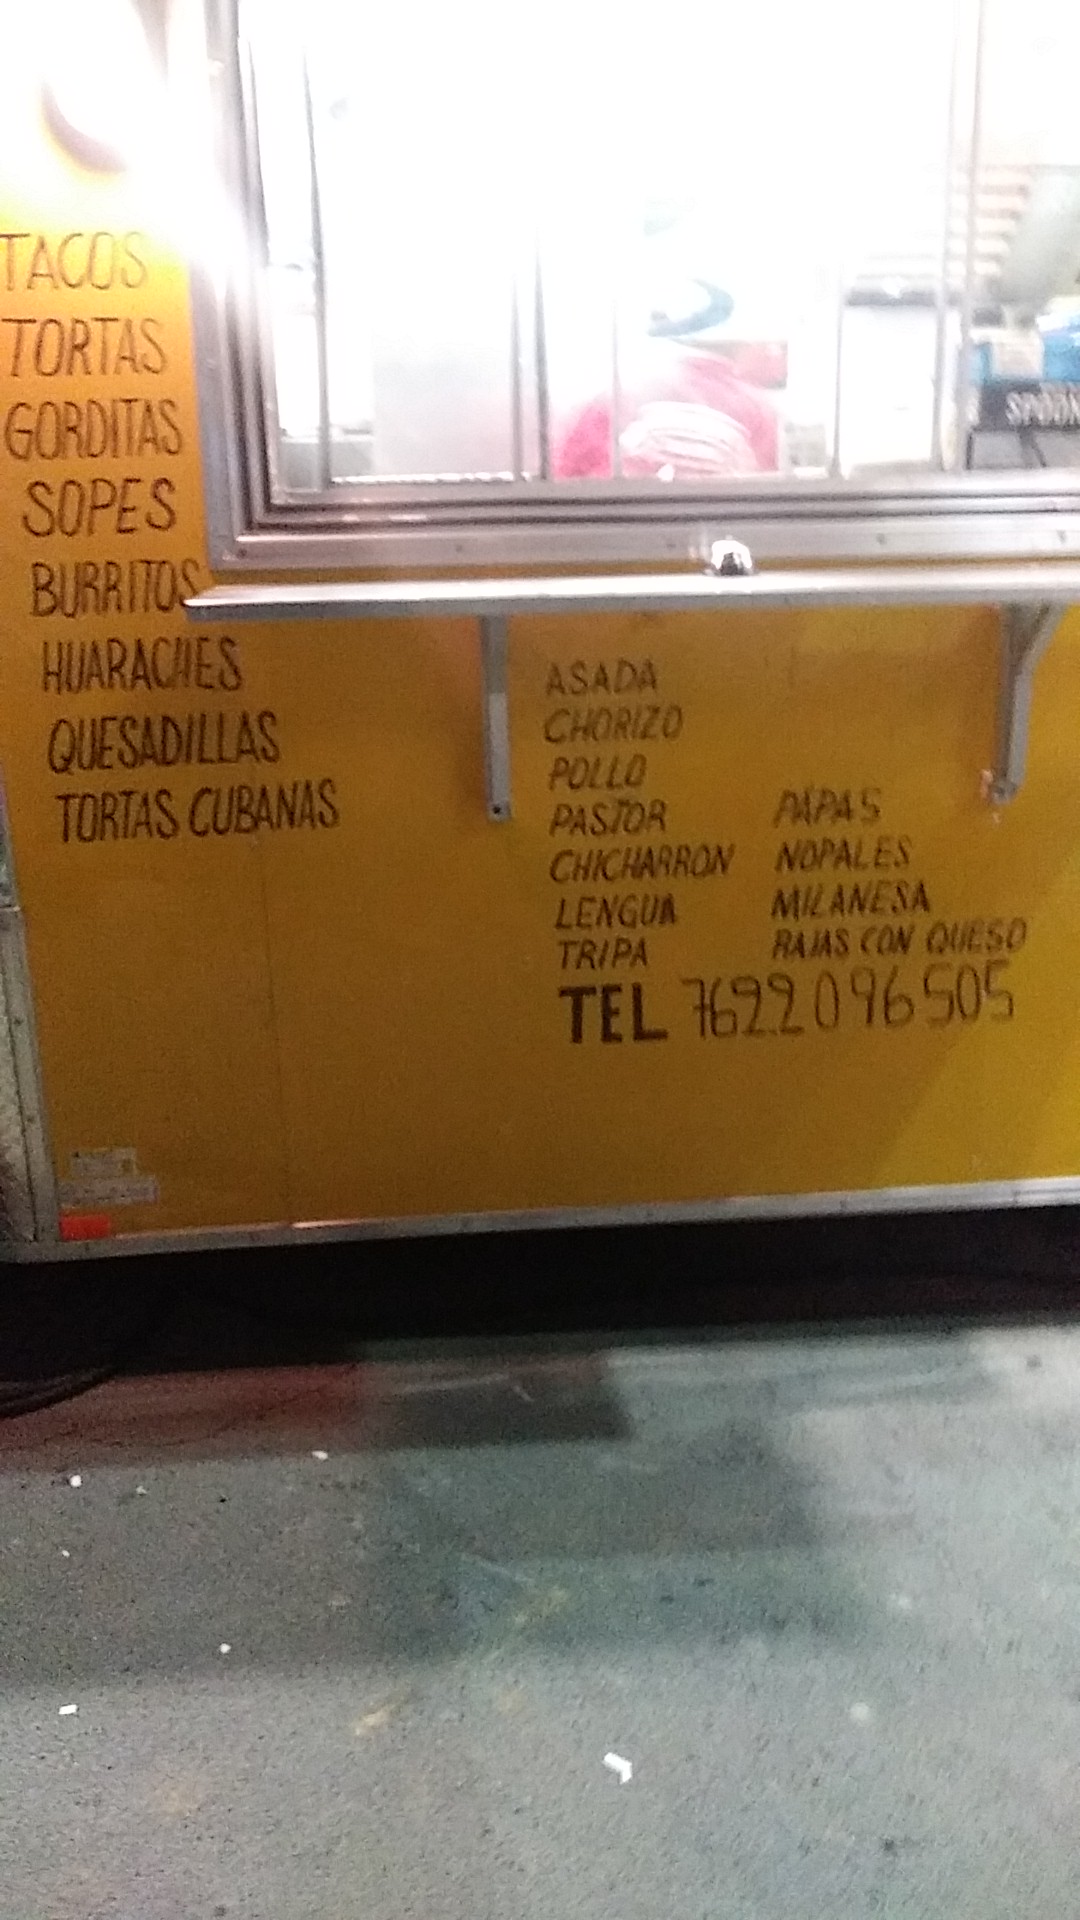 TACOS
TORTAS
GORDITAS
SOPES
BURRITOS
HUARACHES
QUESADILLAS
TORTAS CUBANAS
SPOON
ASADA
CHORIZO
POLLO
PASTOR
CHICHARRON
LENGUA
TRIPA
PAPAS
NOPALES
MILANESA
RAJAS CON QUESO
TEL 7622096505